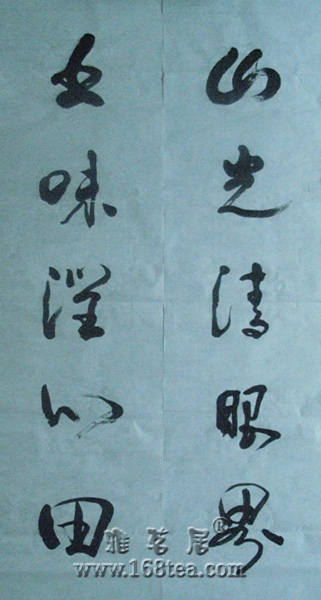 山光清眼界
书味润心田
雅茗居®
www.168tea.com